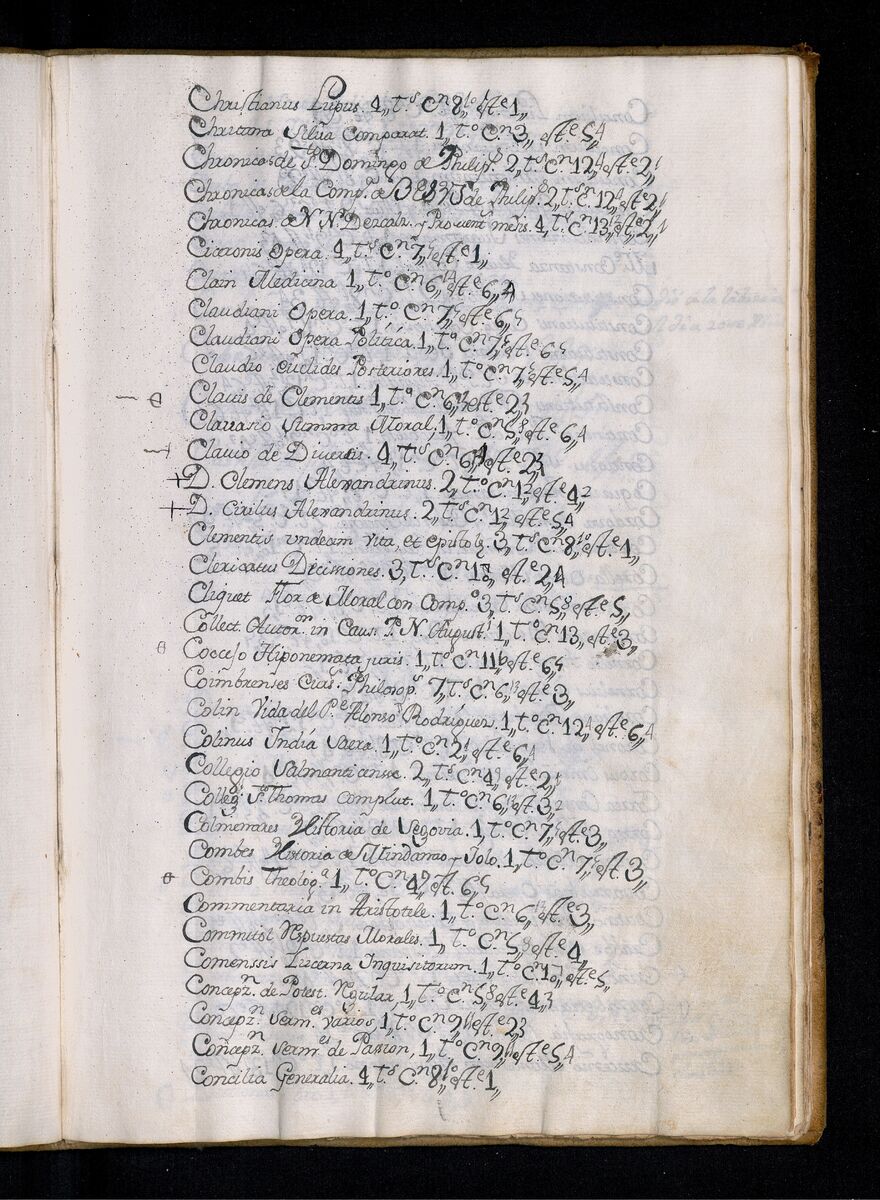 Christianus Lupus. 4,, t.s C.n 8,, est.e 1,,
Christiana Silva Comparat. 1,, t.o C.n 3,, est.e 5,, 4
Chronicas de S.to Domingo de Philip.s 2,, t.s C.n 12,, est.e 2,,
Chronicas de la Comp.a de de Philip.s 2,, t.s C.n 12,, est.e 2,,
Chronicas de N. N. Descalz. y Provent. 4,, t.s C.n 13,, est.e 2,,
Ciceronis Opera. 4,, t.s C.n 7,, est.e 1,,
Clain Medicina 1,, t.o C.n 6,, est.e 6,, 4
Claudiani Opera. 1,, t.o C.n 7,, est.e 6,,
Claudiani Opera Politica. 1,, t.o C.n 7,, est.e 6
Claudio Euclides Posteriores. 1,, t.o C.n 7,, est.e 5,, 4
Clavis de Clementis 1,, t.o C.n 6,, est.e 2,, 3
Clavasio Summa Moral, 1,, t.o C.n 5,, est.e 6,, 4
Clavio de Diversis. 4,, t.s C.n 6,, est.e 2,,
+ D. Clemens Alexandrinus. 2,, t.s C.n 1,, est.e 4,, 2
+ D. Cirilus Alexandrinus. 2,, t.s C.n 1,, est.e 5,, 4
Clementis undecim vita, et epistolę. 3,, t.s C.n 8,, est.e 1,,
Clericatus Decissiones. 3,, t.s C.n 1,, est.e 2,, 4
Cliquet Flor de Moral con Comp.o 3,, t.s C.n 5,, 8 est.e 5,,
Collect. Autor.m in Caus. P. N. August. 1,, t.o C.n 13,, est.e 3,,
Cocceso Hiponemata juris. 1,, t.o C.n 11,, est.e 6,,
Coimbrenses Philosop.s 7,, t.s C.n 6,, est.e 3,,
Colin Vida del P.e Alonso Rodriguez. 1,, t.o C.n 12,, est.e 6,, 4
Colinus India Sacra. 1,, t.o C.n 2,, est.e 6,, 4
Collegio Salmanticense. 2,, t.s C.n 4,, est.e 2,,
Colleg. S. Thomas Complut. 1,, t.o C.n 6,, est.e 3,, 2
Colmenares Historia de Segovia. 1,, t.o C.n 7,, est.e 3,,
Combes Historia de Mindanao y Jolo. 1,, t.o C.n 7,, est. 3,,
Combis Theolog.a 1,, t.o C.n 4,, est.e 6,,
Commentaria in Aristotele. 1,, t.o C.n 6,, est.e 3,,
Commitol Respuestas Morales. 1,, t.o C.n 5,, est.e 4,,
Comenssis Lucerna Inquisitorum. 1,, t.o C.n 1,, est.e 5,,
Concepz.n de Potest. Regular, 1,, t.o C.n 5,, 8 est.e 4,, 3
Concepz.n Serm.es varios, 1,, t.o C.n 9,, est.e 2,, 3
Concepz.n Serm.es de Passion, 1,, t.o C.n 9,, est.e 5,, 4
Concilia Generalia. 4,, t.s C.n 8,, est.e 1,,